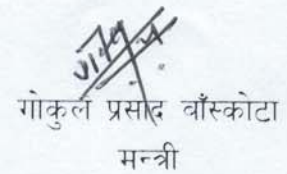 गोकुल प्रसाद वाँस्कोटा
मन्त्री